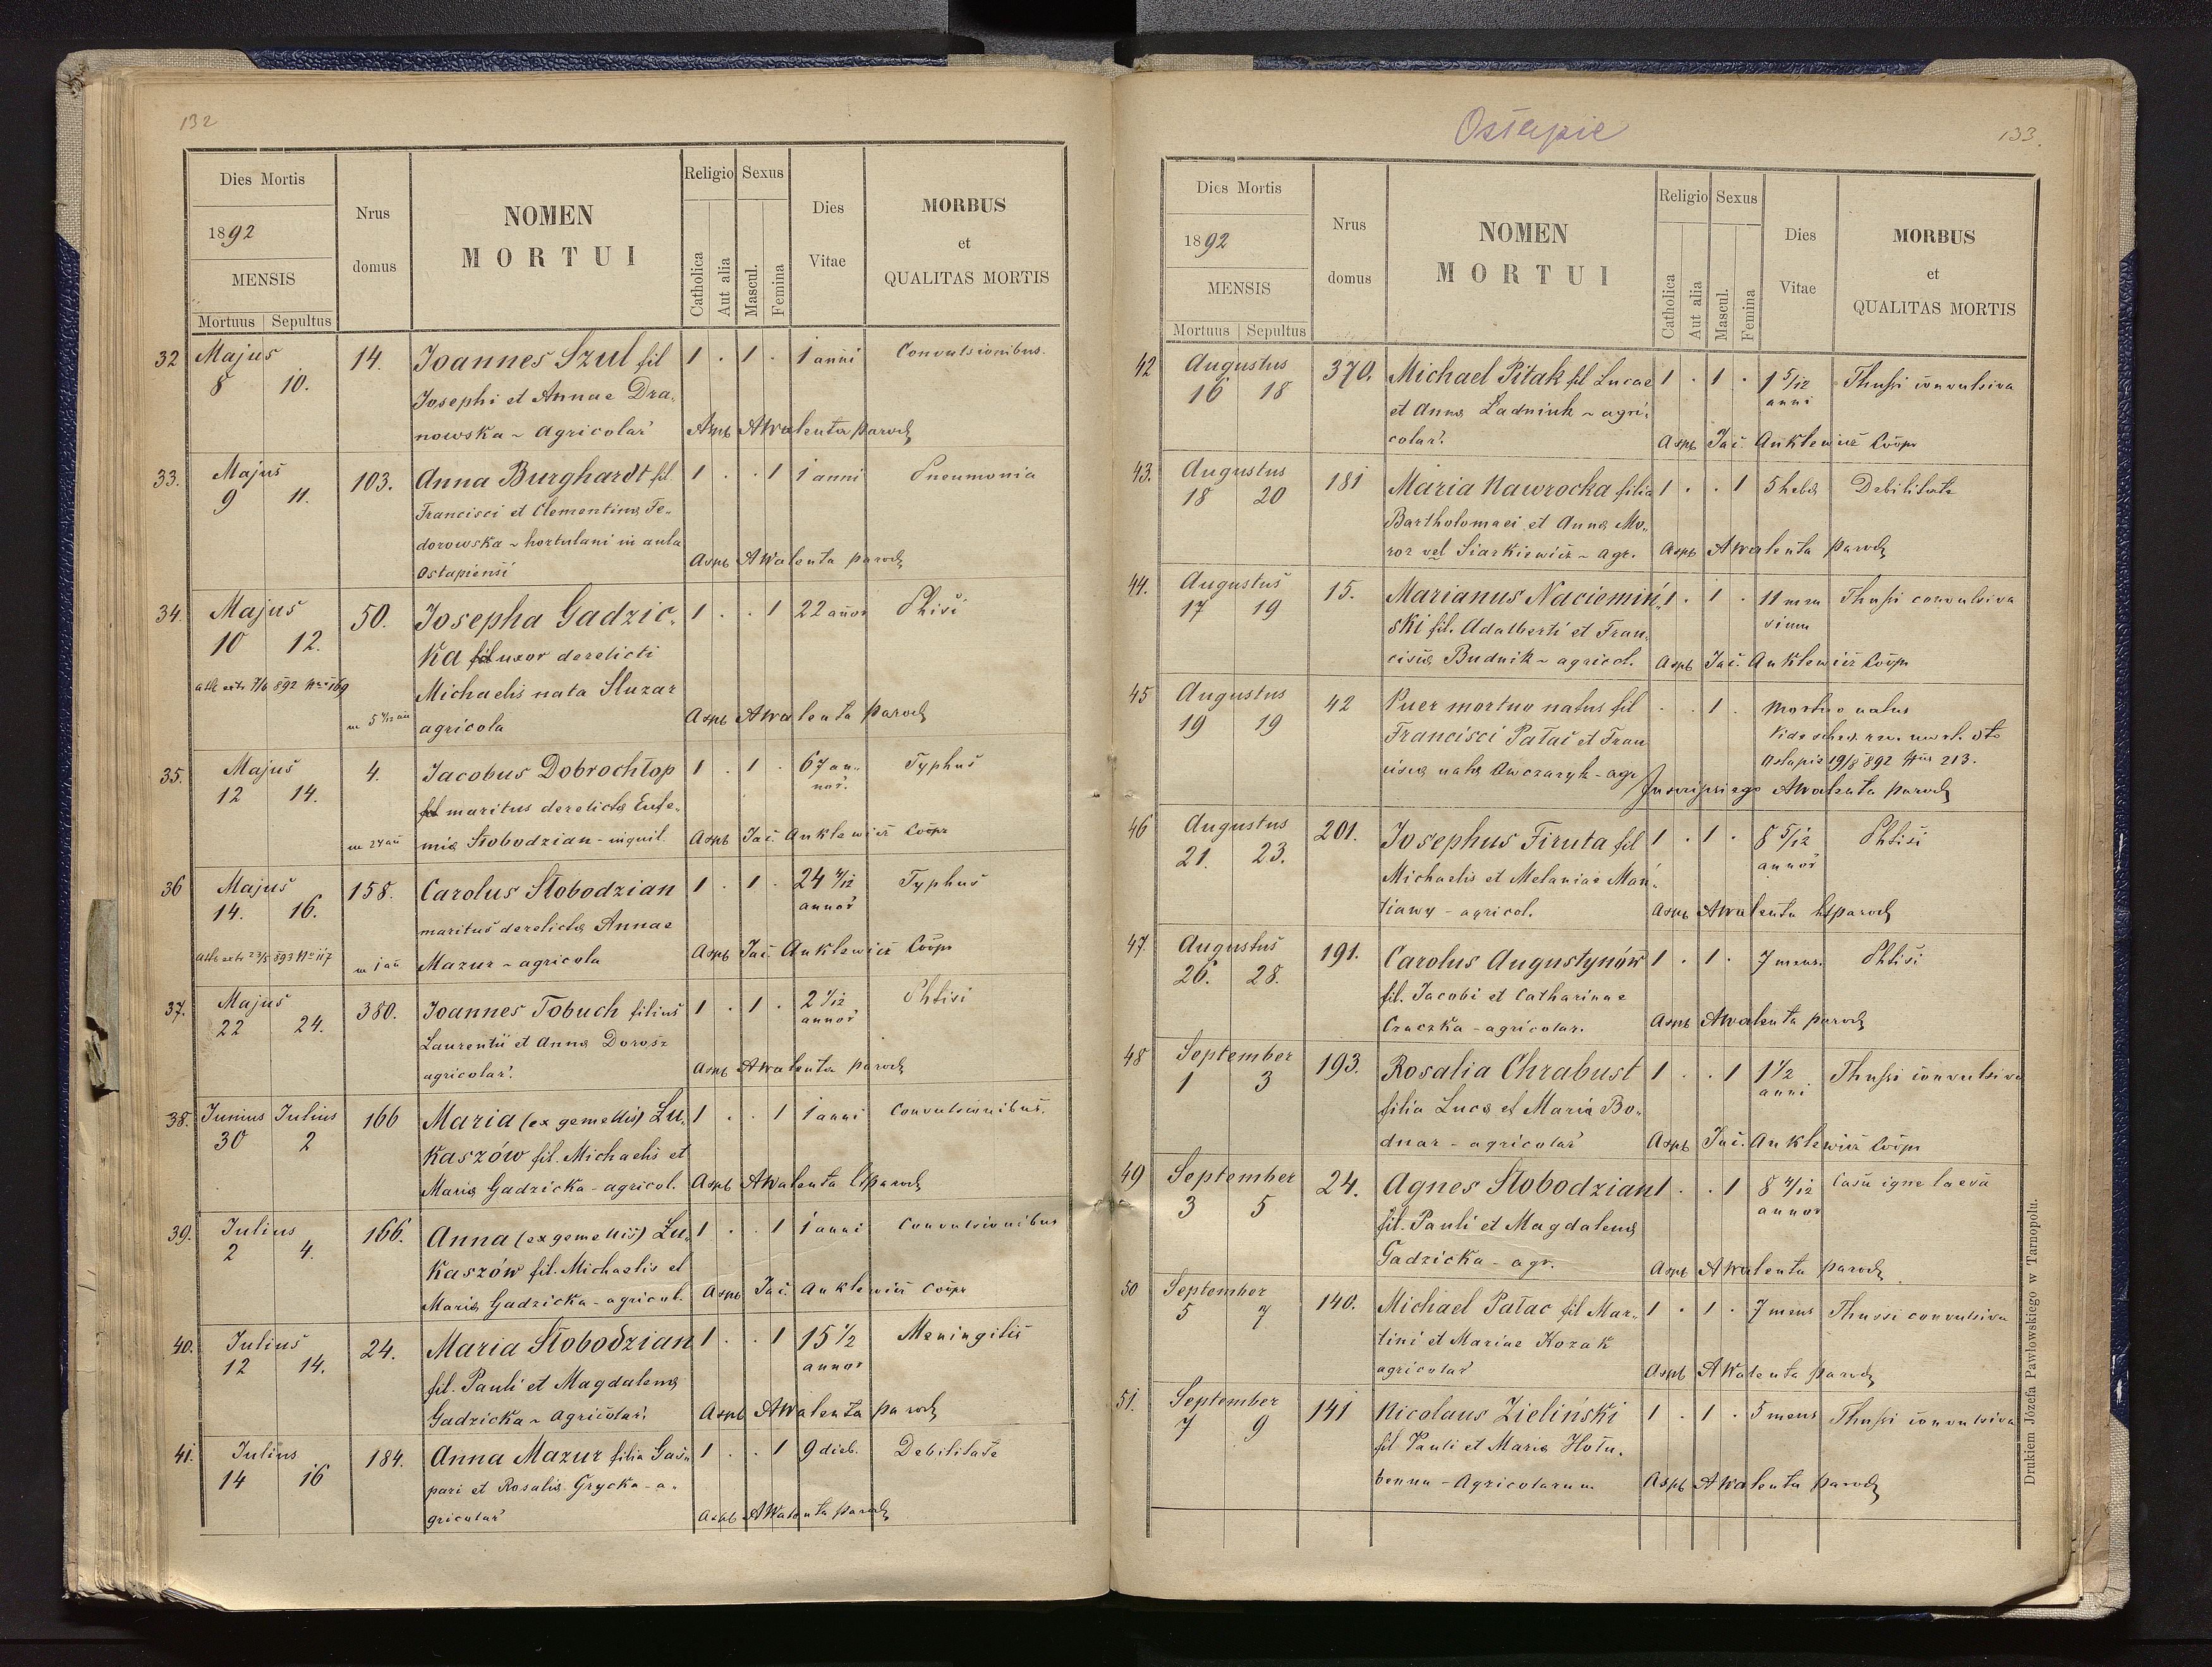 132
Dies Mortis
1892
MENSIS
Mortuus Sepultus
Nrus
domus
NOMEN
MORTUI
Religio
Catholica
Aut alia
Sexus
Mascul.
Femina
Dies
Vitae
MORBUS
et
QUALITAS MORTIS
32 Majus 14. Joannes Szul fil 1 . 1 . 1 anni Convulsionibus.
8 10. Josephi et Annae Dra-
nowska ~ Agricolar Aspb AWalenta paroch
33. Majus 103. Anna Burghardt fil. 1 . . 1 1 anni Pneumonia
9 11. Francisci et Clementina Fe-
dorowska ~ hortulani in aula Aspb AWalenta paroch
Ostapiensi
34. Majus 50. Josepha Gadzic- 1 . . 1 22 annor Phtisi
10 12. ka uxor derelicti
Michaelis nata Sluzar
agricola Aspb AWalenta paroch
35. Majus 4. Jacobus Dobrochłop 1 . 1 . 67 an- Typhus
12 14. maritus derelicta Eufe- nor.
m 24 an mia Słobodzian - inquil. Aspb Jac. Anklewicz Coopr
36 Majus 158. Carolus Słobodzian 1 . 1 . 24 4/12 Typhus
14. 16. maritus derelicta Annae annor
m 1 an Mazur ~ agricola Aspb Jac. Anklewicz Coopr
37. Majus 380. Joannes Tobuch filius 1 . 1 . 2 1/12 Phtisi
22 24. Laurentii et Anna Dorosz annor
agricolar. Aspb AWalenta paroch
38. Junius Julius 166 Maria (ex gemellis) Lu- 1 . . 1 1 anni Convulsionibus.
30 2 kaszów fil. Michaelis et
Maria Gadzicka - agricol. Aspb AWalenta paroch
39. Julius 166. Anna (ex gemellis) Lu- 1 . . 1 1 anni Convulsionibus
2 4. kaszów fil. Michaelis et
Maria Gadzicka - agricol. Aspb Jac. Anklewicz Coopr
40. Julius 24. Maria Słobodzian 1 . . 1 15 1/2 Meningitis
12 14. fil. Pauli et Magdalena annor
Gadzicka ~ Agricolar. Aspb AWalenta paroch
41. Julius 184. Anna Mazur filia Gas- 1 . . 1 9 dieb. Debilitate
14 16 pari et Rosalia Grycka - a-
gricolar Aspb AWalenta paroch
Ostapie
133.
Dies Mortis
1892
MENSIS
Mortuus Sepultus
Nrus
domus
NOMEN
MORTUI
Religio
Catholica
Aut alia
Sexus
Mascul.
Femina
Dies
Vitae
MORBUS
et
QUALITAS MORTIS
42 Augustus 370. Michael Pitak fil Lucae 1 . 1 . 1 5/12 Thussi convulsiva
16 18 et Anna Ładniuk ~ agri- anni
colar. Aspb Jac. Anklewicz Coopr
43. Augustus 181 Maria Nawrocka filia 1 . . 1 5 hebd Debilitate
18 20 Bartholomaei et Anna Mo-
roz vel Siarkiewicz ~ agr. Aspb AWalenta paroch
44. Augustus 15. Marianus Naciemiń- 1 . 1 . 11 men Thussi convulsiva
17 19 ski fil. Adalberti et Fran- sium
cisca Budnik ~ agricol. Aspb Jac. Anklewicz Coopr
45 Augustus 42 Puer mortuo natus fil . . 1 . Mortuo natus
19 19 Francisci Pałac et Fran
cisca nata Owczaryk - agr Ostapie 19/8 892 Nr 213.
Inscripsi ego AWalenta paroch
46 Augustus 201. Josephus Firuta fil 1 . 1 . 8 5/12 Phtisi
21. 23. Michaelis et Melaniae Mań- annor
tiawy - agricol. Aspb AWalenta paroch
47. Augustus 191. Carolus Augustynów 1 . 1 . 7 mens. Phtisi
26. 28. fil. Jacobi et Catharinae
Czaczka - agricolar. Aspb AWalenta paroch
48 September 193. Rosalia Chrabust 1 . . 1 1 1/2 Thussi convulsiva
1 3 filia Luca et Maria Bo- anni
dnar - agricolar Aspb Jac. Anklewicz Coopr
49 September 24. Agnes Słobodzian 1 . . 1 8 4/12 Casu igne laesa
3 5 fil. Pauli et Magdalena annor
Gadzicka - agr. Aspb AWalenta paroch
50 September 140. Michael Pałac fil Mar- 1 . 1 . 7 mens Thussi convulsiva
5 7 tini et Mariae Kozak
agricolar Aspb AWalenta paroch
51. September 141 Nicolaus Zieliński 1 . 1 . 5 mens Thussi convulsiva
7 9 fil Pauli et Maria Hołu-
benna - Agricolarum Aspb AWalenta paroch
Drukiem Józefa Pawłowskiego w Tarnopolu.